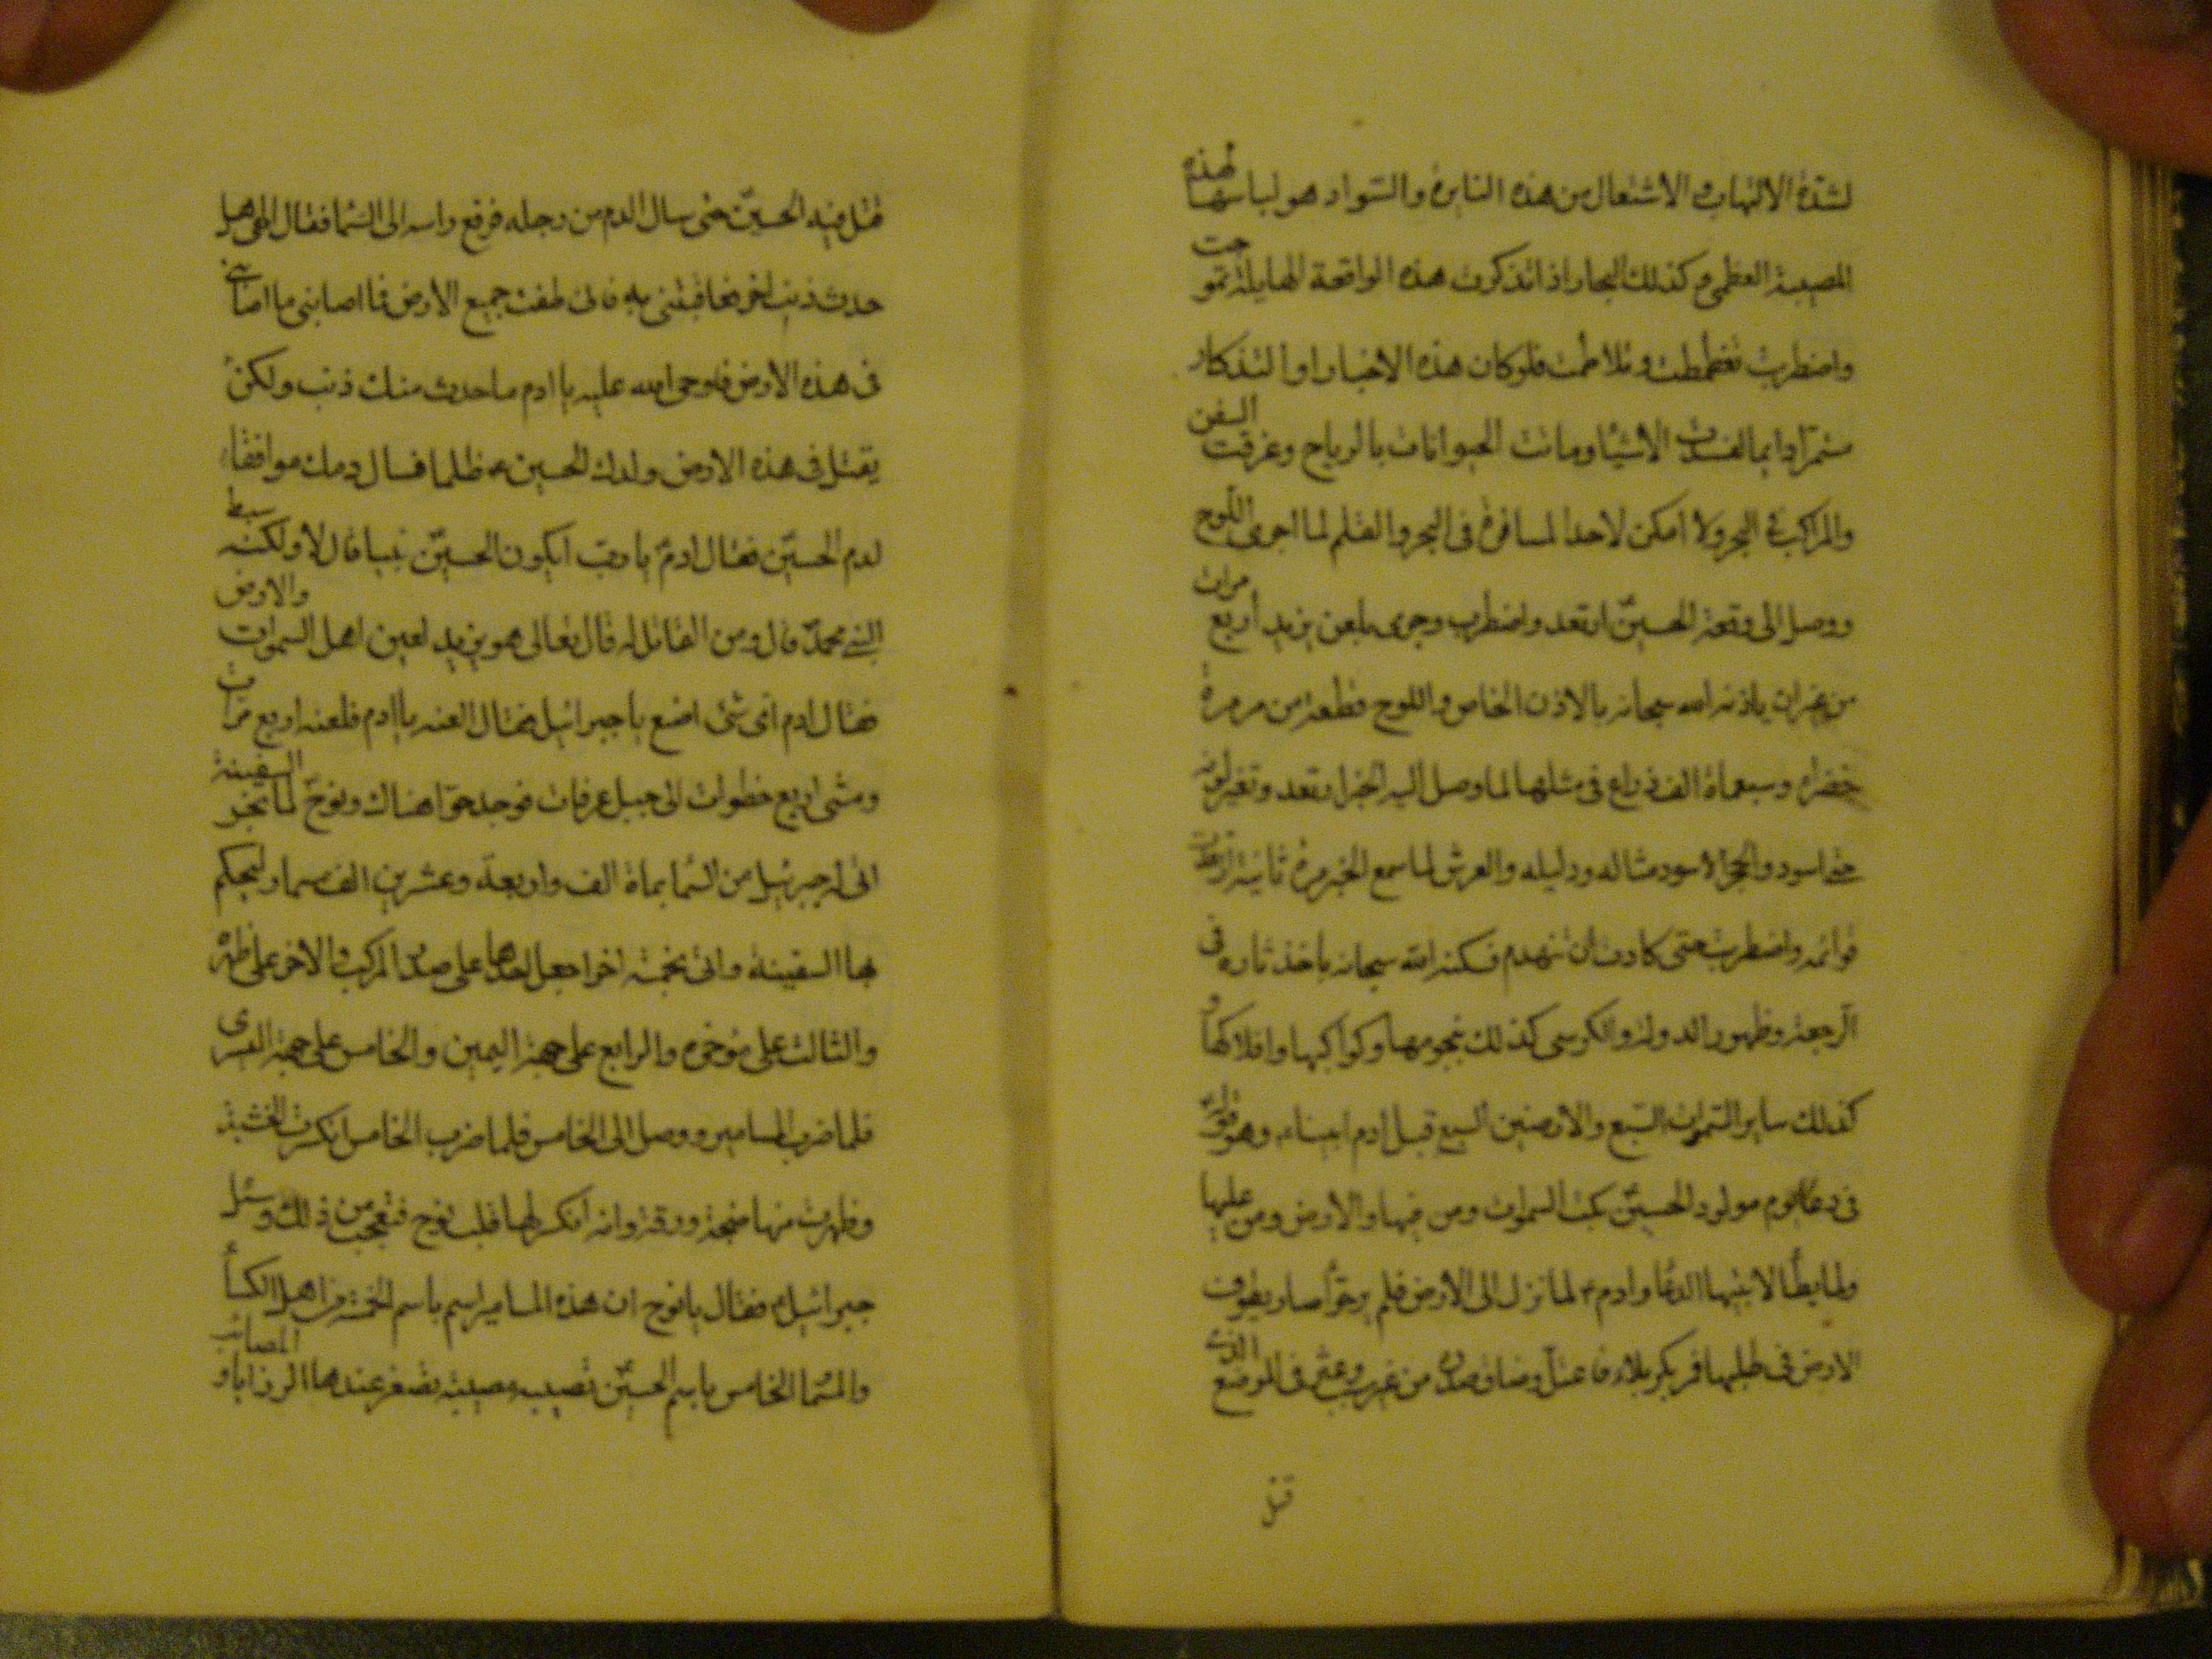 لشدة الالتهاب و الاشتعال من هذه النايرة والسواد هو لباسها لهذه
المصيبة العظمى وكذلك البحار اذا تذكرت هذه الواقعة الهايلة تموجت
واضطربت تغطمطت وتلاطمت فلو كان هذه الاخبار او التذكار
مستمرا دايما لفسدت الاشياء وماتت الحيوانات بالرياح وغرقت السفن
والمراكب فى البحر ولا امكن لاحد المسافرة فى البحر والقلم لما اجرى اللوح
ووصل الى وقعة الحسين ارتعد واضطرب وجرى بلعن يزيد أربع مرات
من غير ان ياذنه الله سبحانه بالاذن الخاص واللوح قطعة من مرمرة
خضراء وسبعماة الف ذراع فى مثلها لما وصل اليه الخبر ارتعد وتغير لونه
حتى اسود والحجر الاسود مثاله ودليله والعرش لما سمع الخبر مرة ثانية ارتعدت
قوائمه واضطربت حتى كادت ان تنهدم فسكنه الله سبحانه باخذ ثاره فى
الرجعة وظهور الدولة والكرسى كذلك بنجومها وكواكبها وافلاكها و
كذلك ساير السموات السبع والارضين السبع قبل ادم ابيناء، وهو قوله
فى دعاء يوم مولود الحسين بكت السموات ومن فيها والارض ومن عليها
ولما يطأ لابتيها الدعا وادم لما نزل الى الارض فلم ير حوأ صار يطوف
الارض فى طلبها فمر بكربلاء فاعتل وضاق صدره من غير وعثر فى الموضع الذى
قتل
قتل فيه الحسين حتى سال الدم من رجله فرفع راسه الى السما فقال الهى هل
حدث ذنب اخر فعاقبتنى به فانى طفت جميع الارض فما اصابنى ما اصابنى
فى هذه الارض فاوحى الله عليه يا ادم ما حدث منك ذنب ولكن
يقتل فى هذه الارض ولدك الحسين ع ظلما فسال دمك موافقا
لدم الحسين فقال ادم يا رب ايكون الحسين نبيا قال لا ولكنه سبط
النبى محمد قال ومن القاتل له قال تعالى هو يزيد لعين اهل السموات والارض
فقال ادم اى شئ اضع يا جبرائيل فقال العنه يا ادم فلعنه اربع مرات
ومشى اربع خطوات الى جبل عرفات فوجد حوا هناك ونوح لما نجر السفينة
اتى له جبرئيل من السما بماة الف واربعة وعشرين الف مسمار ليحكم
بها السفينة واتى بخمسة اخر اجعل احدها على صدر المركب والاخر على ظهره
والثالث على موخره والرابع على جهة اليمين والخامس على جهة اليسرى
فلما ضرب المسامير ووصل الى الخامس فلما ضرب الخامس انكرت الخشبة
وظهرت منها ضجة ورقة وانه انكسر لها قلب نوح فتعجب من ذلك وسئل
جبرائيل فقال يا نوح ان هذه المسامير اسم باسم الخمسة من اهل الكسأ
والمسما الخامس باسم الحسين تصيبه مصيبة تصغر عندها الرزايا و المصائب